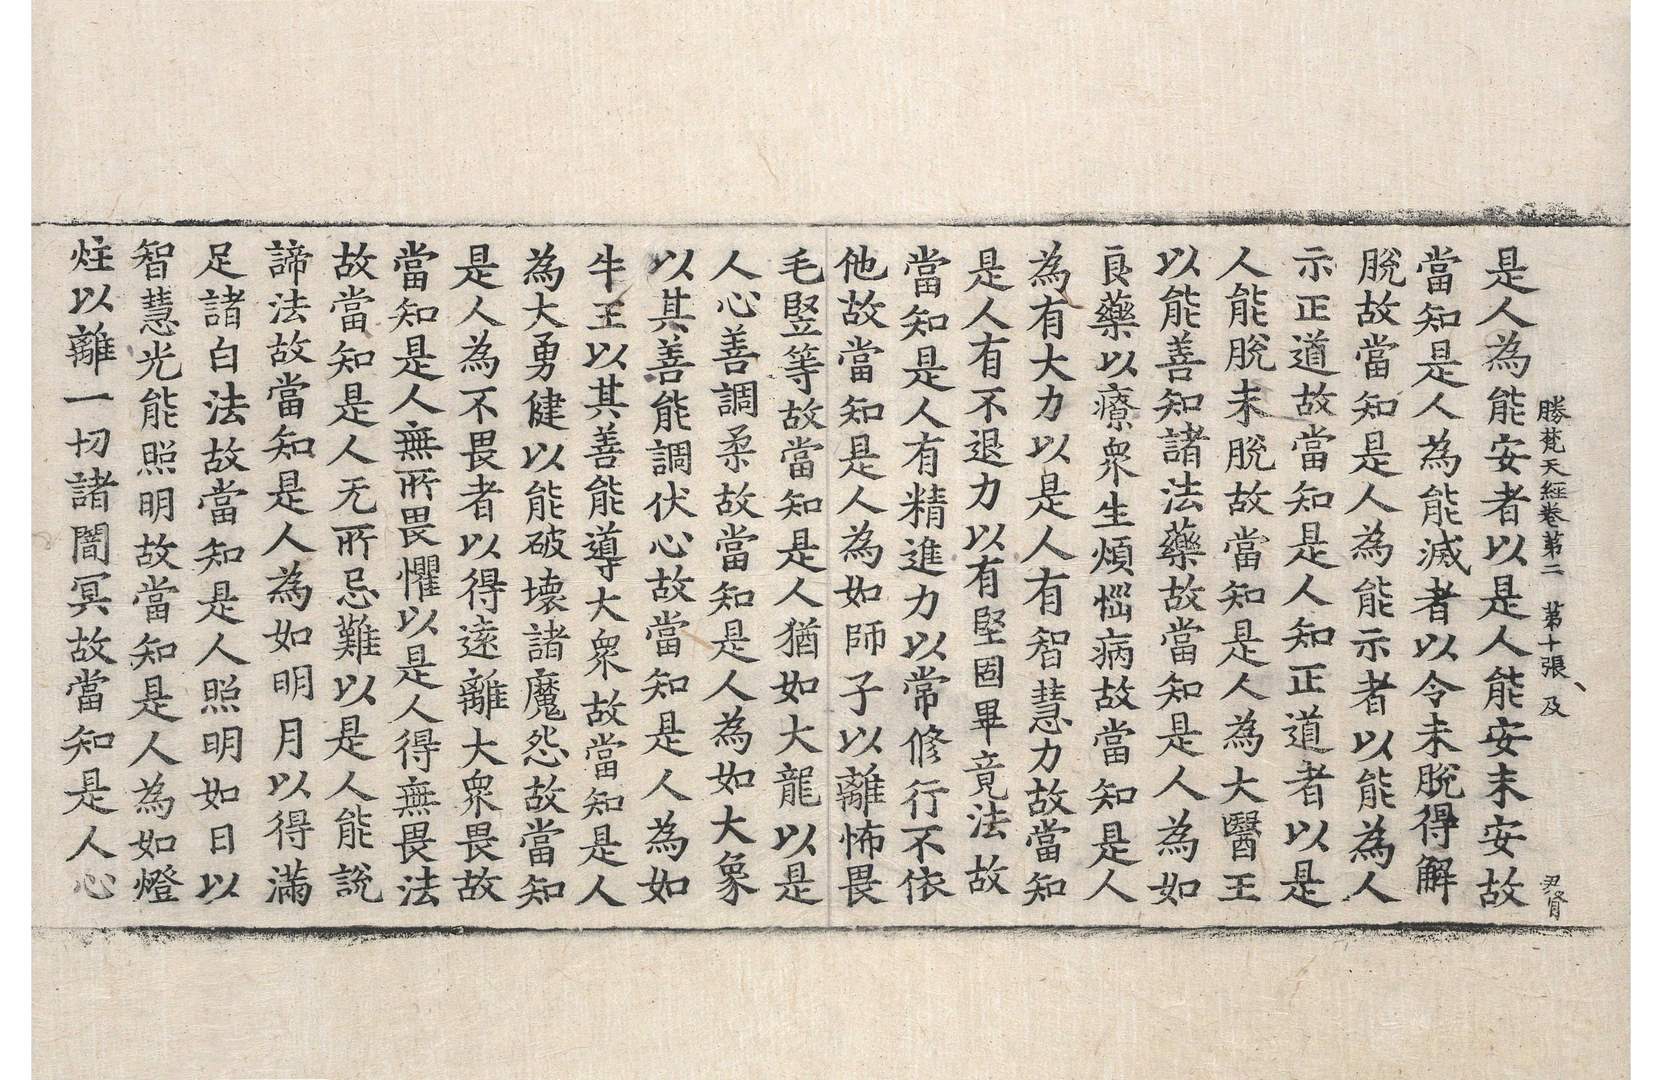 勝䒦天經卷第二　第十張　及
是人為能安者以是人能安未安故
當知是人為能滅者以令未脫得解
脫故當知是人為能示者以能為人
示正道故當知是人知正道者以是
人能脫未脫故當知是人為大醫王
以能善知諸法藥故當知是人為如
良藥以療衆生煩惱病故當知是人
為有大力以是人有智慧力故當知
是人有不退力以有堅固畢竟法故
當知是人有精進力以常修行不依
他故當知是人為如師子以離怖畏
毛竪等故當知是人猶如大龍以是
人心善調柔故當知是人為如大象
以其善能調伏心故當知是人為如
牛王以其善能導大衆故當知是人
為大勇健以能破壞諸魔怨故當知
是人為不畏者以得遠離大衆畏故
當知是人無所畏懼以是人得無畏法
故當知是人无所忌難以是人能說
諦法故當知是人為如明月以得滿
足諸白法故當知是人照明如日以
智慧光能照明故當知是人為如燈
炷以離一切諸闇冥故當知是人心